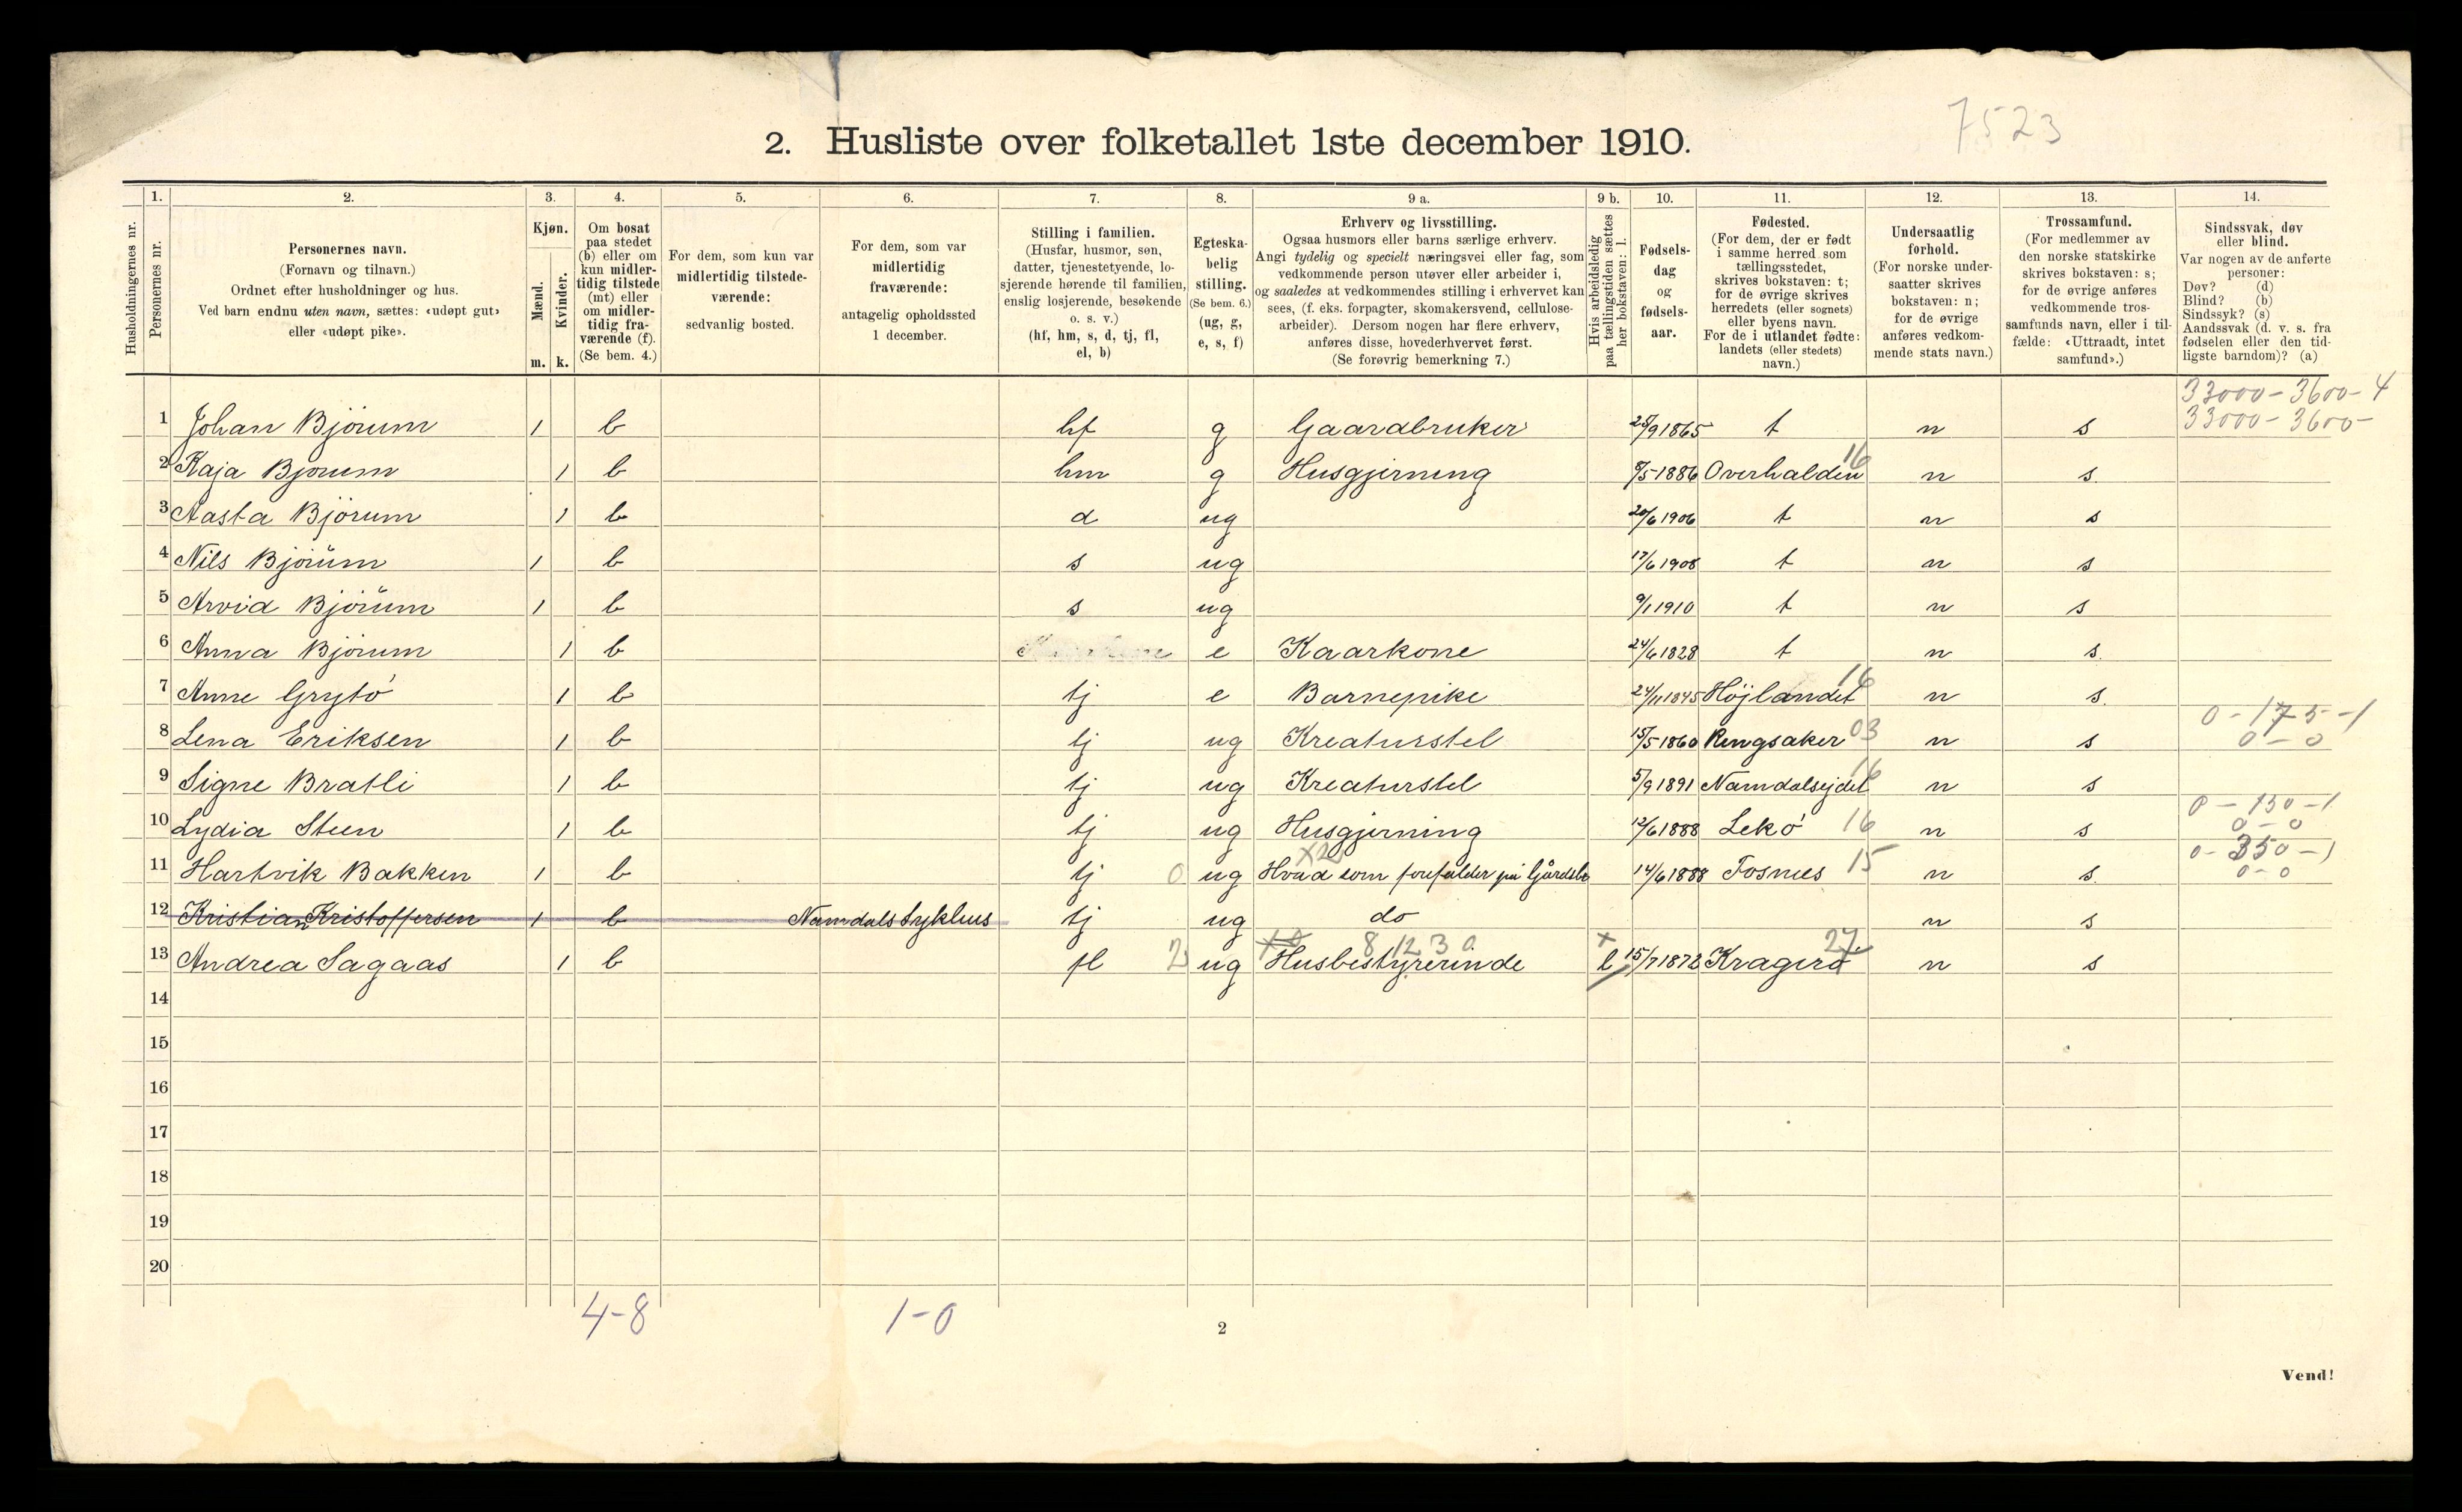 7523
2. Husliste over folketallet 1ste december 1910.
Husholdningernes nr.
1.
Personernes nr.
2.
Personernes navn.
(Fornavn og tilnavn.)
Ordnet efter husholdninger og hus.
Ved barn endnu uten navn, sættes: «udøpt gut»
eller «udøpt pike».
3.
Kjøn.
Mænd.
Kvinder.
m. k.
4.
Om bosat
paa stedet
(b) eller om
kun midler-
tidig tilstede
(mt) eller
om midler-
tidig fra-
værende (f).
(Se bem. 4.)
5.
For dem, som kun var
midlertidig tilstede-
værende:
sedvanlig bosted.
6.
For dem, som var
midlertidig
fraværende:
antagelig opholdssted
1 december.
7.
Stilling i familien.
(Husfar, husmor, søn,
datter, tjenestetyende, lo-
sjerende hørende til familien,
enslig losjerende, besøkende
o. s. v.)
(hf, hm, s, d, tj, fl,
el, b)
8.
Egteska-
belig
stilling.
(Se bem. 6.)
(ug, g,
e, s, f)
9 a.
Erhverv og livsstilling.
Ogsaa husmors eller barns særlige erhverv.
Angi tydelig og specielt næringsvei eller fag, som
vedkommende person utøver eller arbeider i,
og saaledes at vedkommendes stilling i erhvervet kan
sees, (f. eks. forpagter, skomakersvend, cellulose-
arbeider). Dersom nogen har flere erhverv,
anføres disse, hovederhvervet først.
(Se forøvrig bemerkning 7.)
9 b.
Hvis arbeidsledig
paa tællingstiden sættes
her bokstaven: l.
10.
Fødsels-
dag
og
fødsels-
aar.
11.
Fødested.
(For dem, der er født
i samme herred som
tællingsstedet,
skrives bokstaven: t;
for de øvrige skrives
herredets (eller sognets)
eller byens navn.
For de i utlandet fødte:
landets (eller stedets)
navn.)
12.
Undersaatlig
forhold.
(For norske under-
saatter skrives
bokstaven: n;
for de øvrige
anføres vedkom-
mende stats navn.)
13.
Trossamfund.
(For medlemmer av
den norske statskirke
skrives bokstaven: s;
for de øvrige anføres
vedkommende tros-
samfunds navn, eller i til-
fælde: «Uttraadt, intet
samfund».)
14.
Sindssvak, døv
eller blind.
Var nogen av de anførte
personer:
Døv? (d)
Blind? (b)
Sindssyk? (s)
Aandssvak (d. v. s. fra
fødselen eller den tid-
ligste barndom)? (a)
33000-3600-4
1 Johan Bjørum 1 b hf g Gaardbruker 25/9 1865 t n s 33000-3600-
2 Kaja Bjørum 1 b hm g Husgjerning 8/5 1886 Overhalden 16 n s
3 Aasta Bjørum 1 b d ug 20/6 1906 t n s
4 Nils Bjørum 1 b s ug 17/6 1908 t n s
5 Arvid Bjørum 1 b s ug 9/1 1910 t n s
6 Anna Bjørum 1 b e Kaarkone 24/6 1828 t n s
7 Anne Grytø 1 b tj e Barnepike 24/11 1845 Højlandet 16 n s
0-175-1
8 Lena Eriksen 1 b tj ug Kreaturstel 15/5 1860 Ringsaker 03 n s 0-0
9 Signe Bratli 1 b tj ug Kreaturstel 5/9 1891 Namdalsejdet 16 n s
0-150-1
10 Lydia Steen 1 b tj ug Husgjerning 12/6 1888 Lekø 16 n s 0-0
x2 0-350-1
11 Hartvik Bakken 1 b tj 0 ug Hvad som forefalder på Gårdsbr 14/6 1888 Fosnes 15 n s 0-0
12 Kristian Kristoffersen 1 b Namdals sykhus tj ug do n s
8 12 3 0 x 27
13 Andrea Sagaas 1 b fl 2 ug Husbestyrerinde l 15/7 1872 Kragerø n s
14
15
16
17
18
19
20
4-8 1-0
2
Vend!